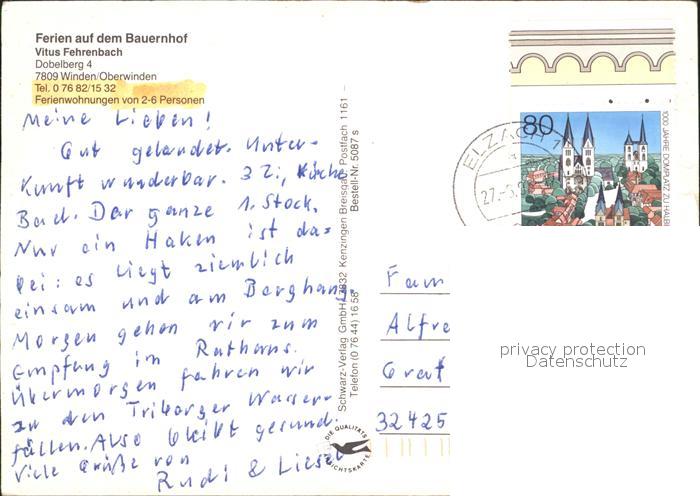 Ferien auf dem Bauernhof
Vitus Fehrenbach
Dobelberg 4
7809 Winden/Oberwinden
Tel. 0 76 82/15 32
Ferienwohnungen von 2-6 Personen
Meine Lieben!
Gut gelandet. Unter-
kunft wunderbar. 3 Zi, Küche
Bad. Der ganze 1. Stock.
Nur ein Haken ist da-
bei: es liegt ziemlich
einsam und am Berghang.
Morgen gehen wir zum
Empfang im Rathaus.
Übermorgen fahren wir
zu den Triberger Wasser-
fällen. Also bleibt gesund.
Viele Grüße von
Rudi & Liesel
Schwarz-Verlag GmbH 7832 Kenzingen Breisgau Postfach 1161 –
Telefon (0 76 44) 16 58 Bestell-Nr. 5087 s
DIE QUALITÄTS
ANSICHTSKARTE
80
1000 JAHRE DOMPLATZ ZU HALB
ELZACH 1
27.-5.
Fam
Alfre
Graf
32425
privacy protection
Datenschutz